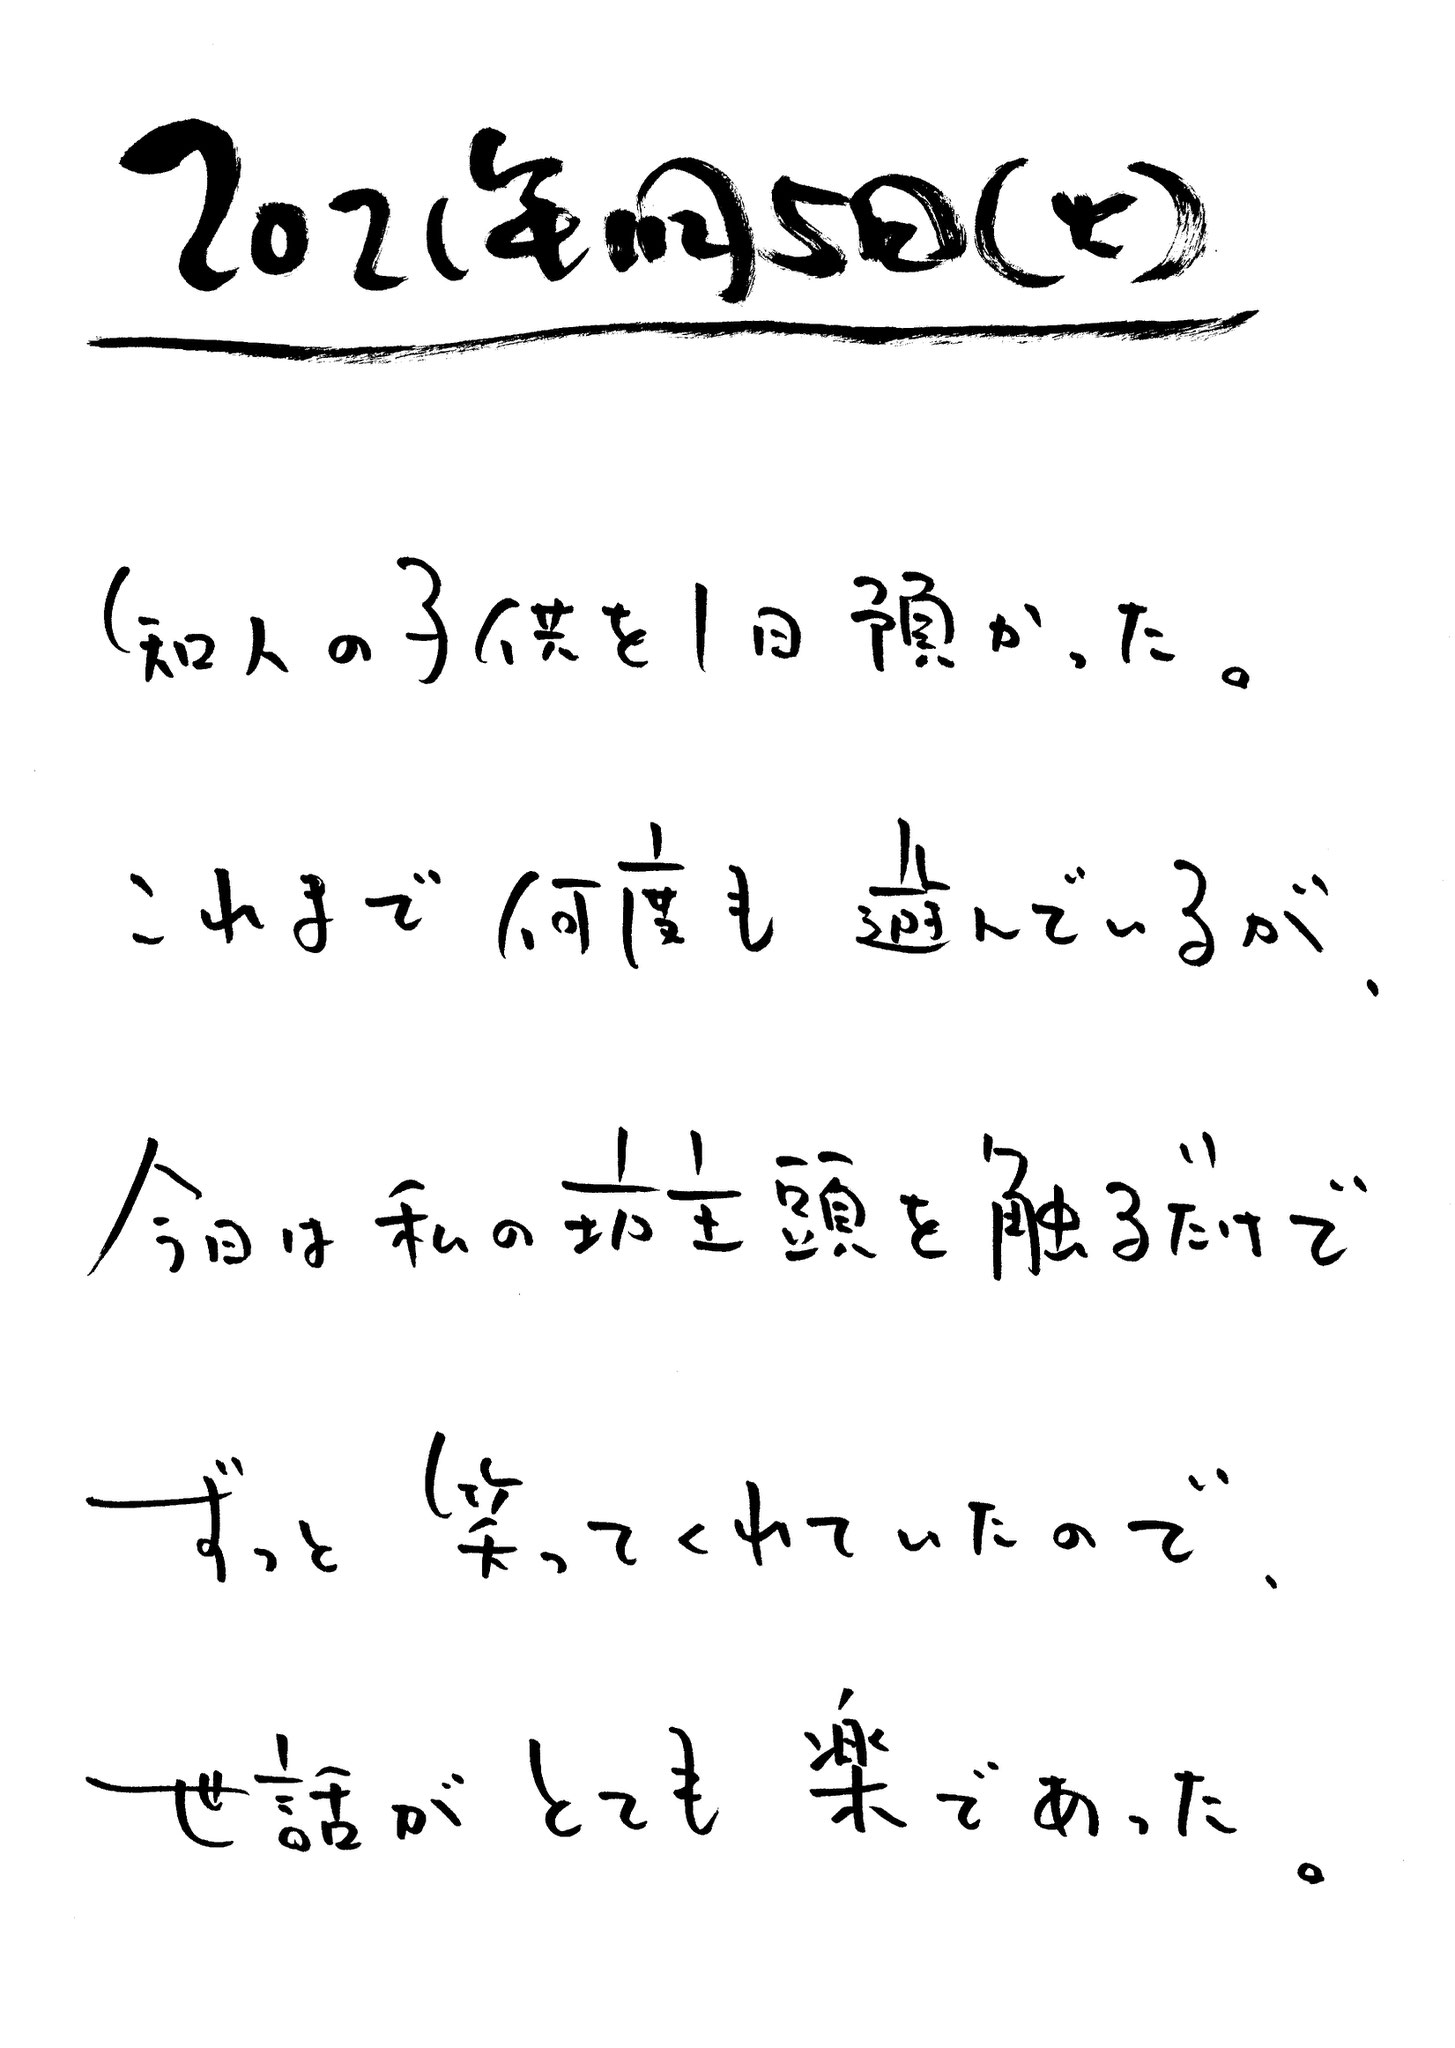 2021年10月5日(火)
知人の子供を1日預かった。
これまで何度も遊んでいるが、
今日は私の坊主頭を触るだけで
ずっと笑ってくれていたので、
世話がとても楽であった。